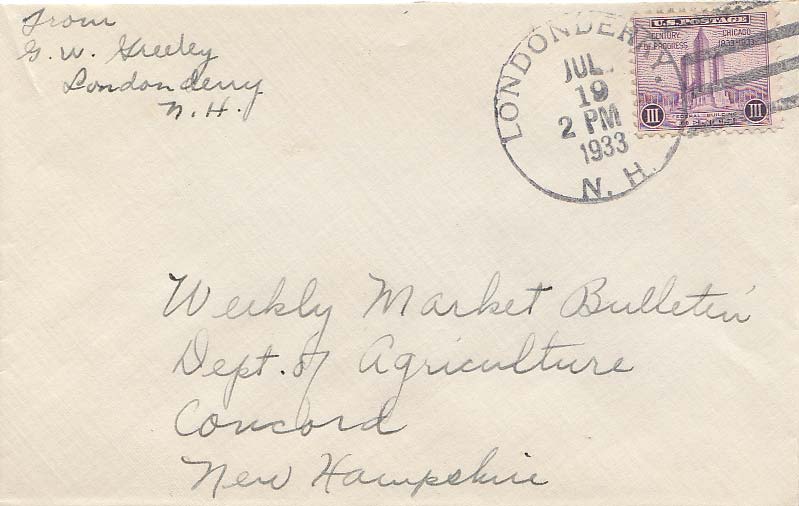 From
G. W. Greeley
Londonderry
N. H.
LONDONDERRY
JUL
19
2 PM
1933
N. H.
U.S. POSTAGE
CENTURY OF PROGRESS
CHICAGO 1833-1933
III III
FEDERAL BUILDING
Weekly Market Bulletin
Dept. of Agriculture
Concord
New Hampshire